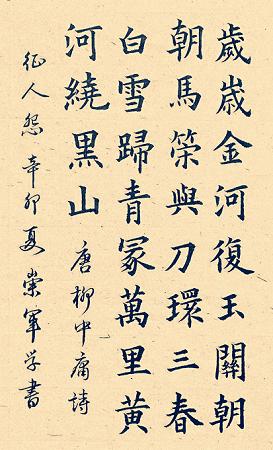 歲歲金河復玉關朝
朝馬策與刀環三春
白雪歸青冢萬里黃
河繞黑山 唐柳中庸詩
征人怨 辛卯夏 崇軍学書